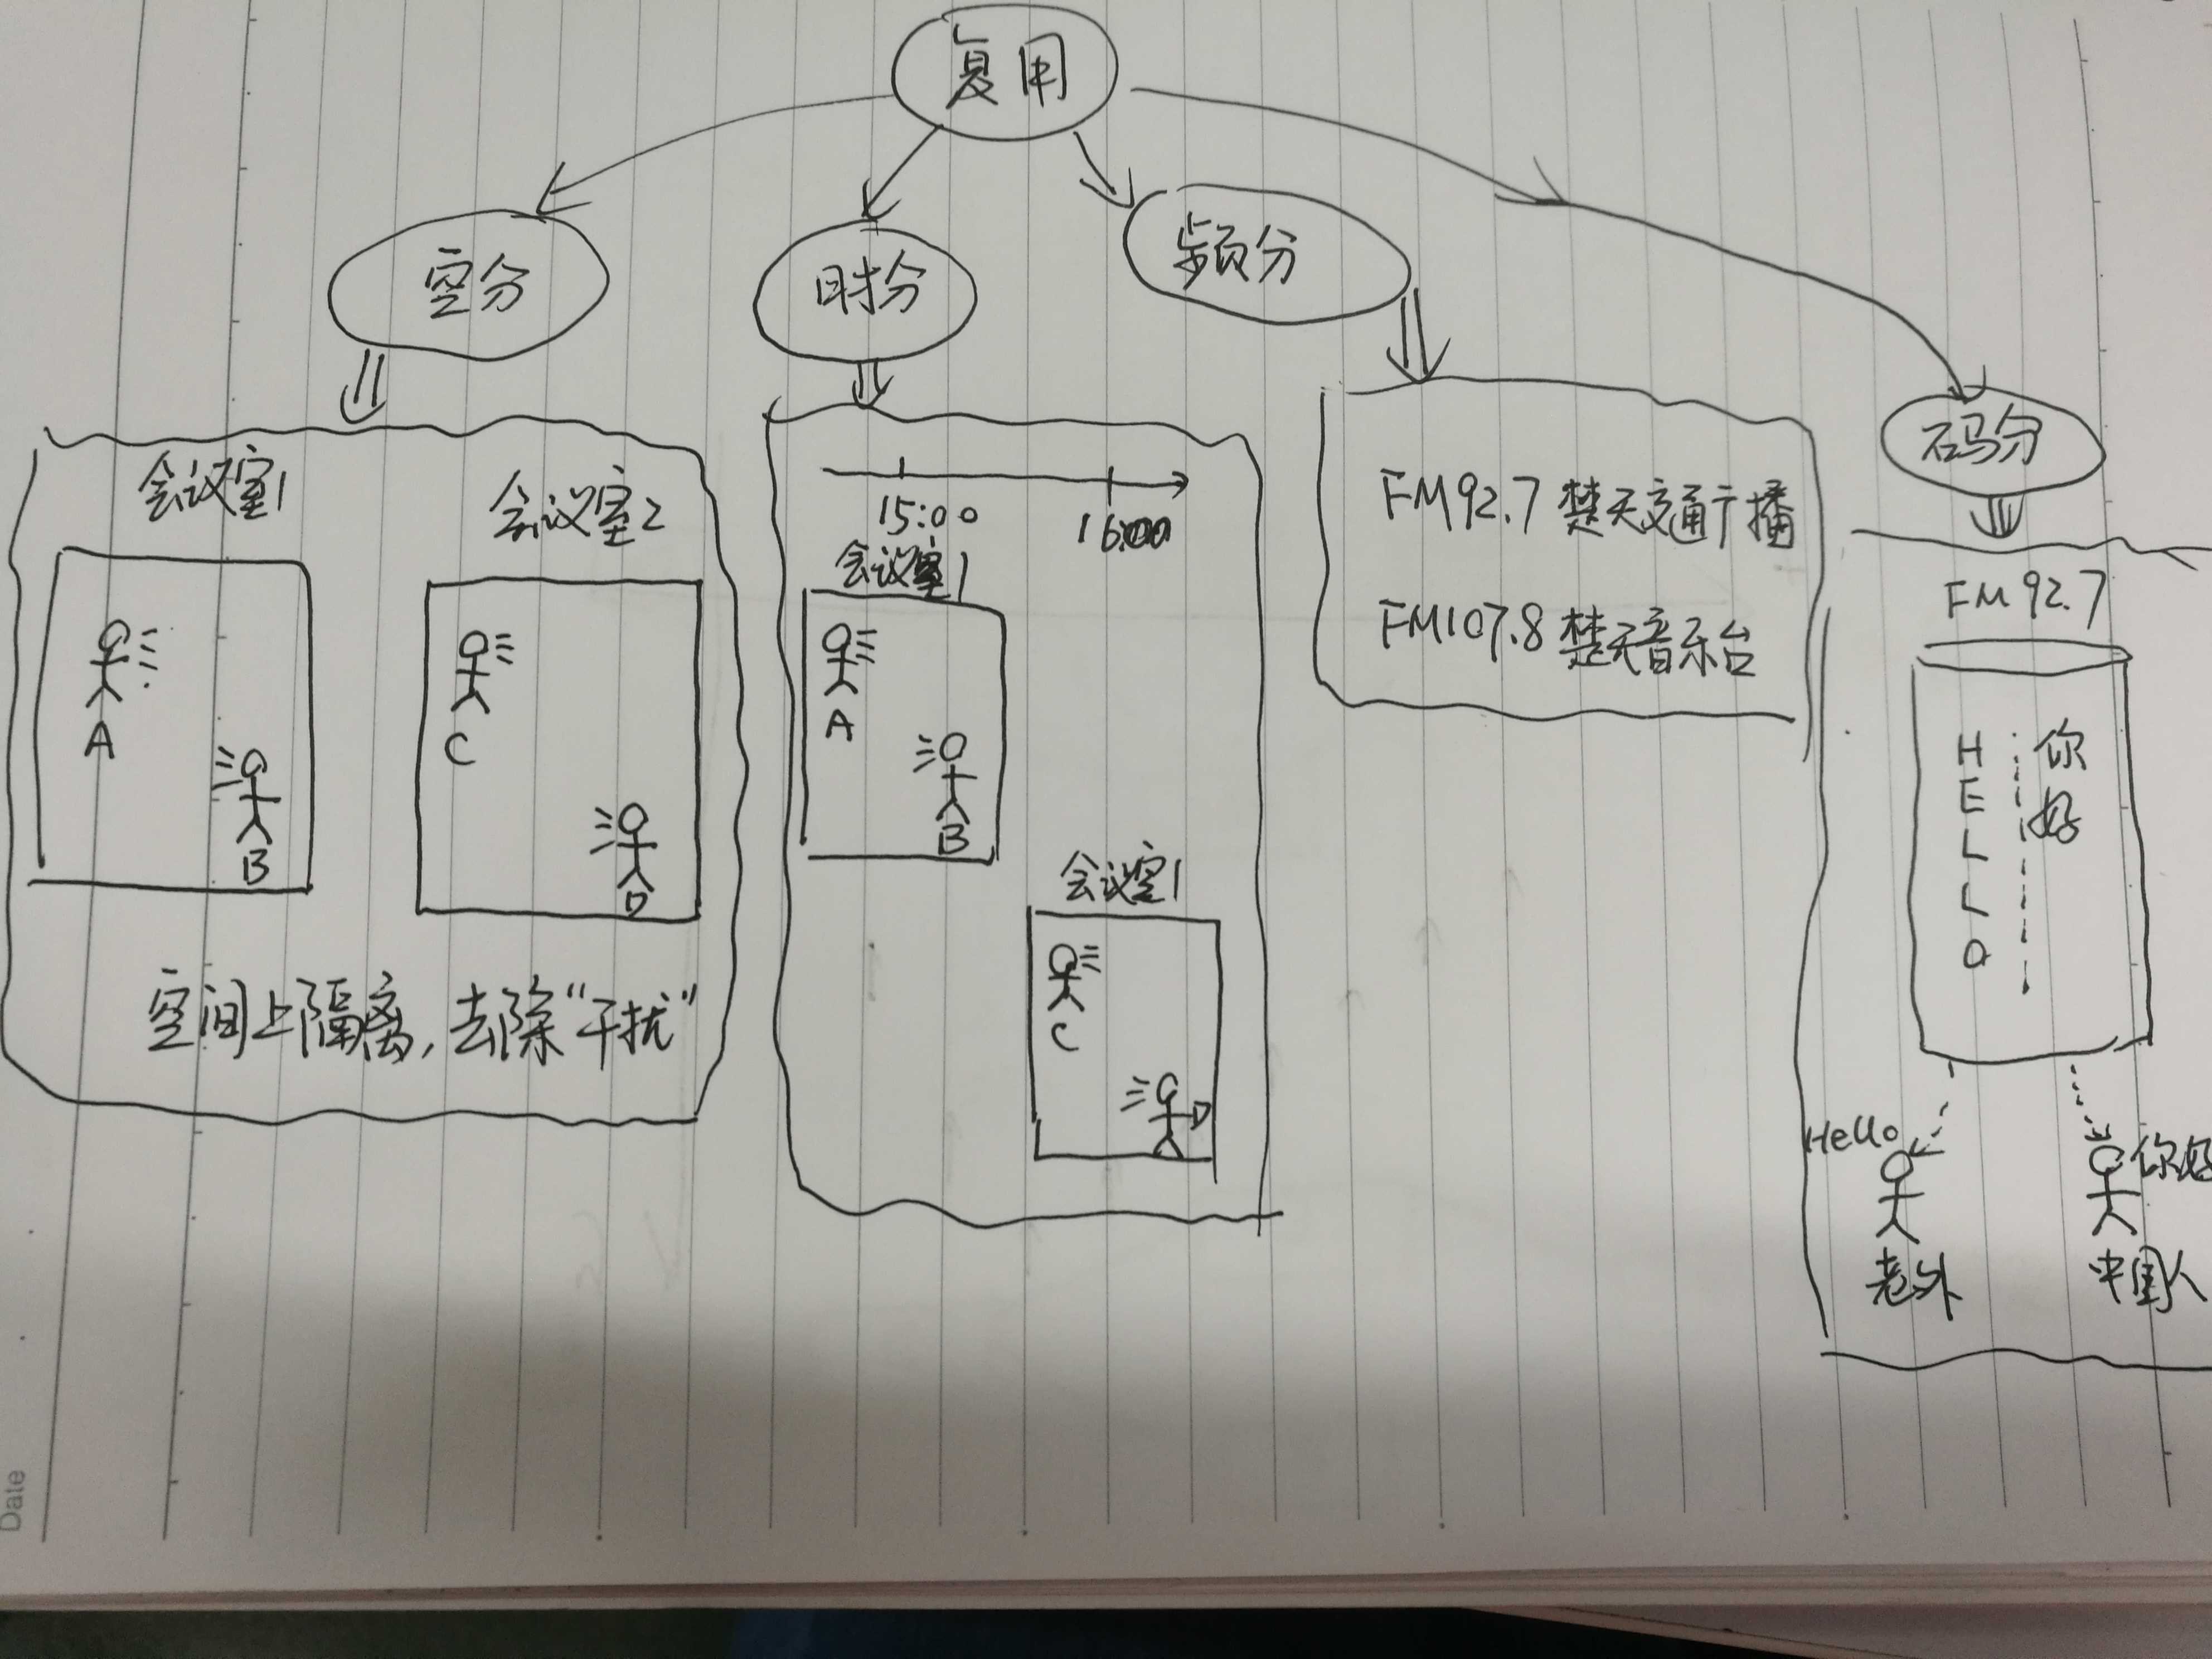 复用
空分
时分
频分
码分
会议室1
会议室2
A
B
C
D
空间上隔离,去除“干扰”
15:00
16:00
会议室1
A
B
会议室1
C
D
FM92.7 楚天交通广播
FM107.8 楚天音乐台
FM 92.7
HELLO
你好
Hello
你好
老外
中国人
Date